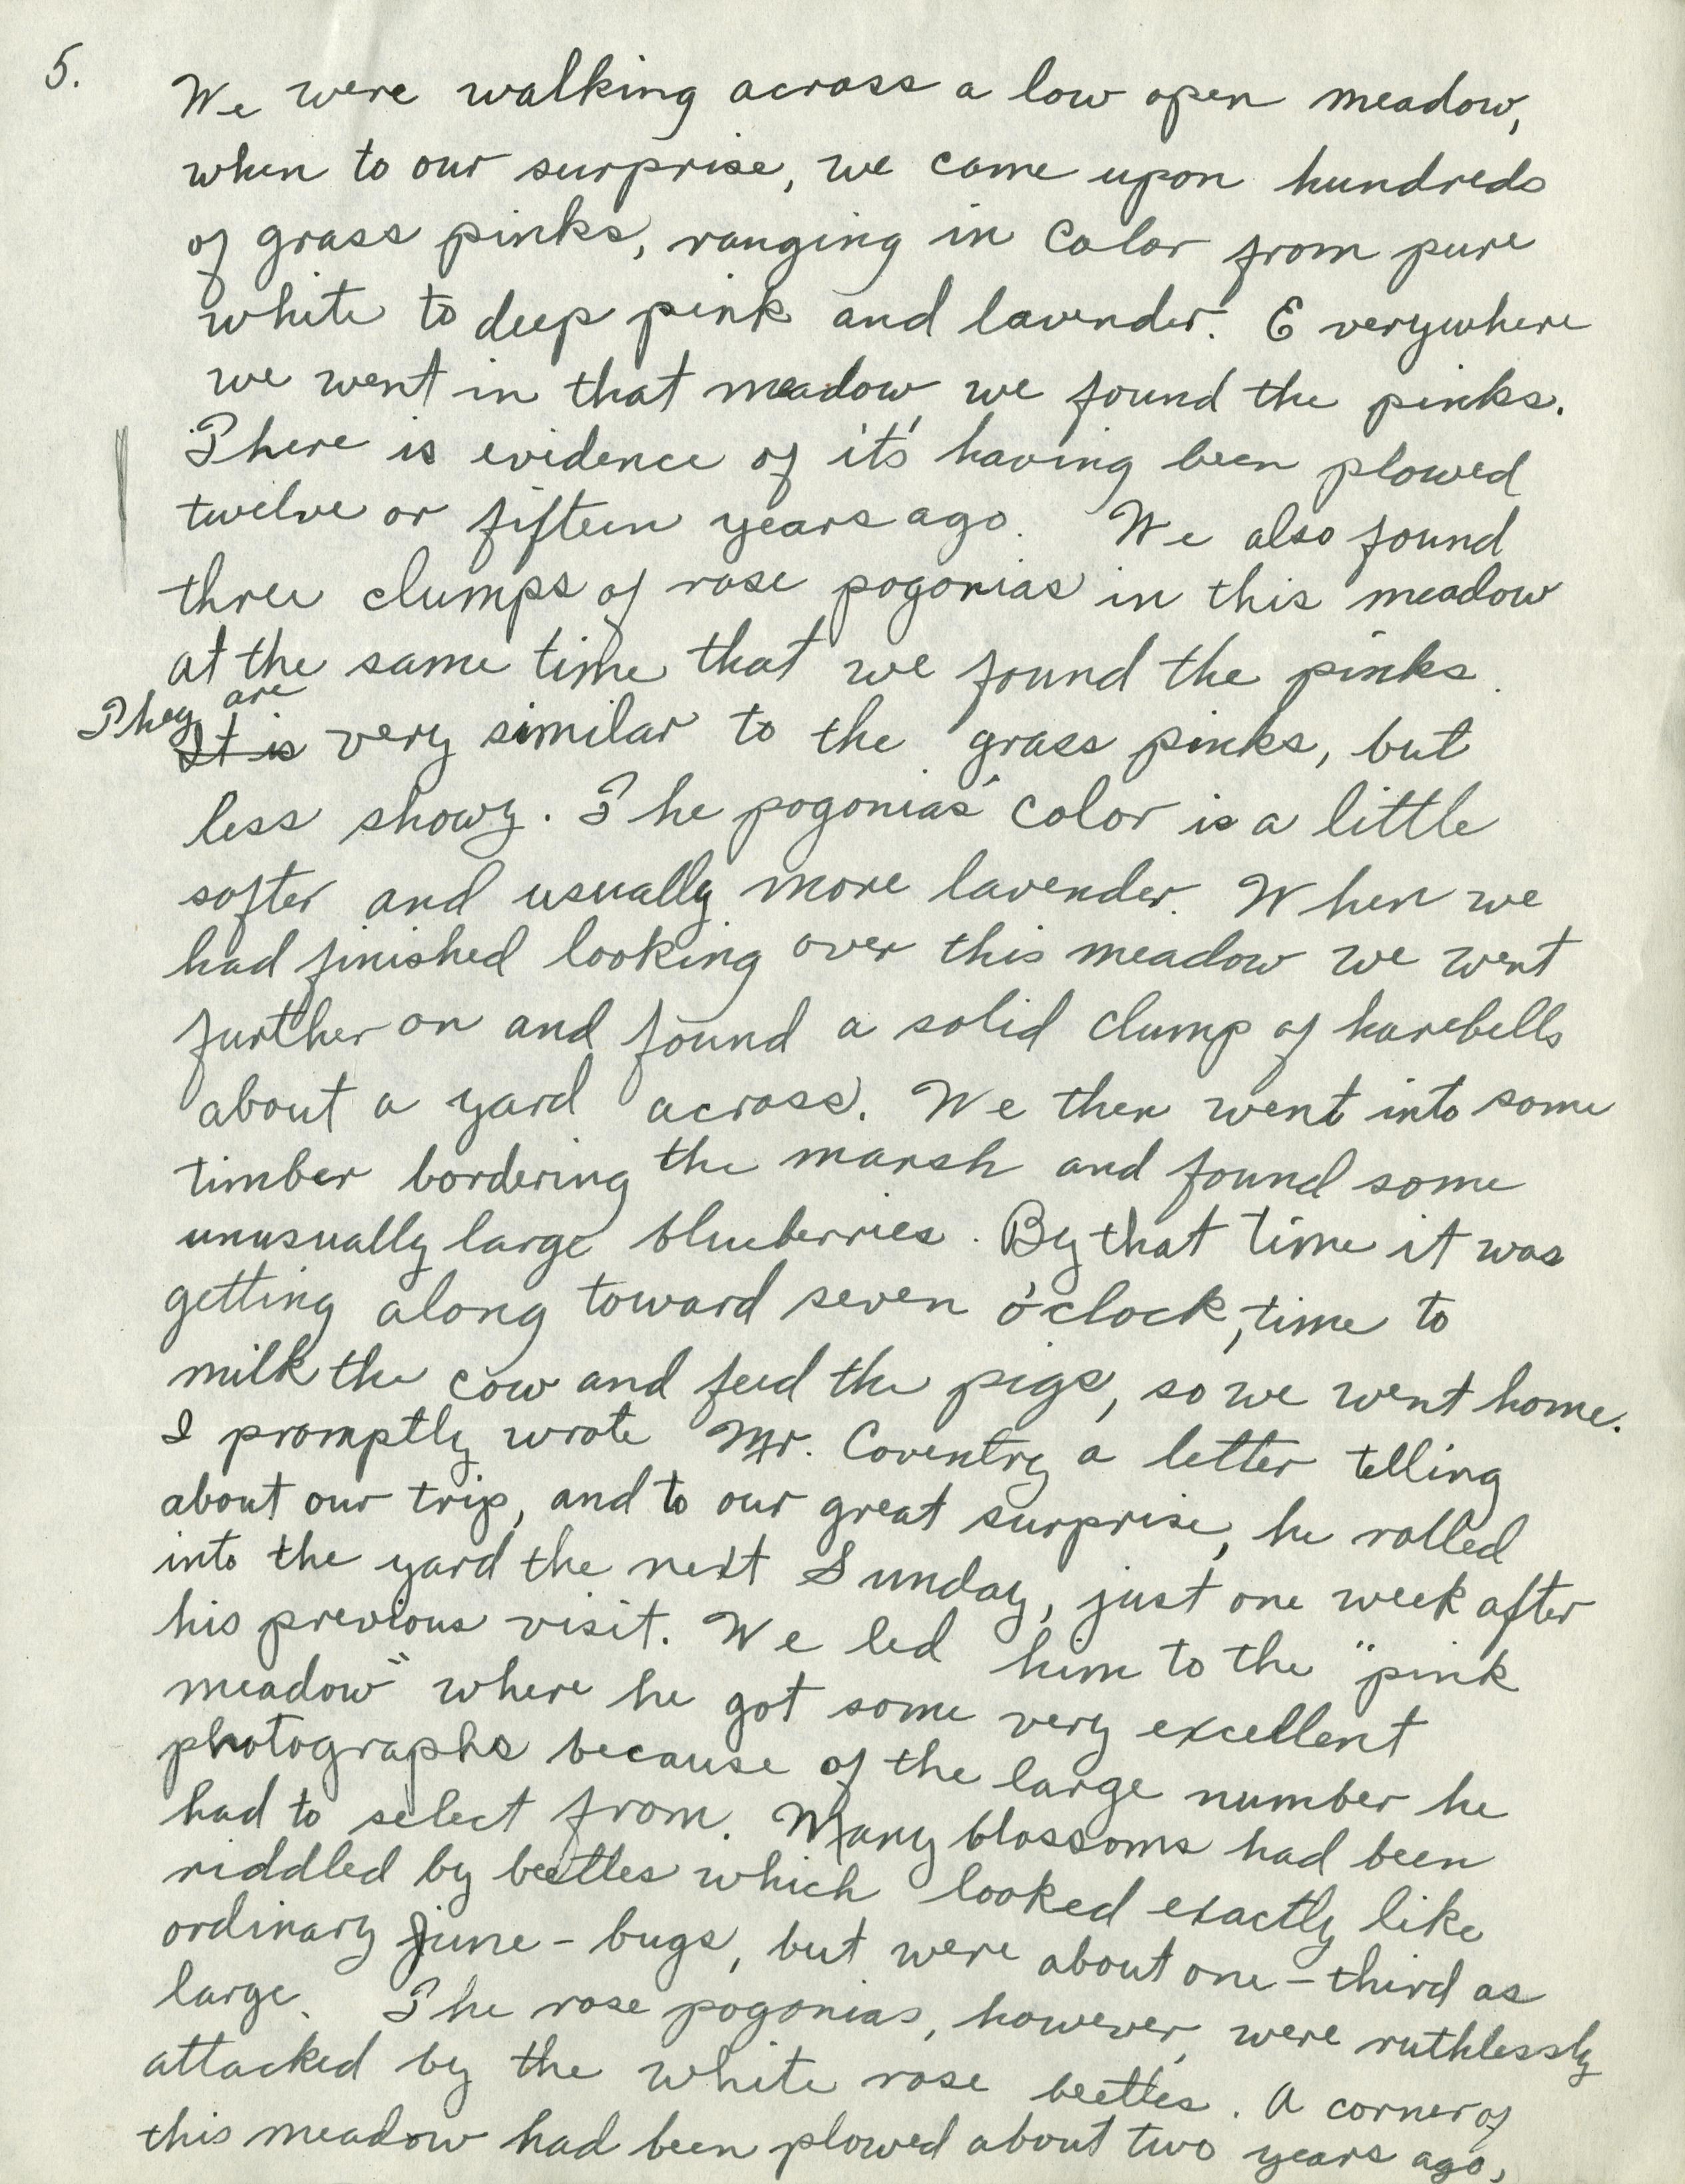 5.
We were walking across a low open meadow,
when to our surprise, we came upon hundreds
of grass pinks, ranging in color from pure
white to deep pink and lavender. Everywhere
we went in that meadow we found the pinks.
There is evidence of it's having been plowed
twelve or fifteen years ago. We also found
three clumps of rose pogonias in this meadow
at the same time that we found the pinks.
They are
It is very similar to the grass pinks, but
less showy. The pogonias' color is a little
softer and usually more lavender. When we
had finished looking over this meadow we went
further on and found a solid clump of harebells
about a yard across. We then went into some
timber bordering the marsh and found some
unusually large blueberries. By that time it was
getting along toward seven o'clock, time to
milk the cow and feed the pigs, so we went home.
I promptly wrote Mr. Coventry a letter telling
about our trip, and to our great surprise, he rolled
into the yard the next Sunday, just one week after
his previous visit. We led him to the "pink
meadow" where he got some very excellent
photographs because of the large number he
had to select from. Many blossoms had been
riddled by beetles which looked exactly like
ordinary june-bugs, but were about one-third as
large. The rose pogonias, however, were ruthlessly
attacked by the white rose beetles. A corner of
this meadow had been plowed about two years ago,